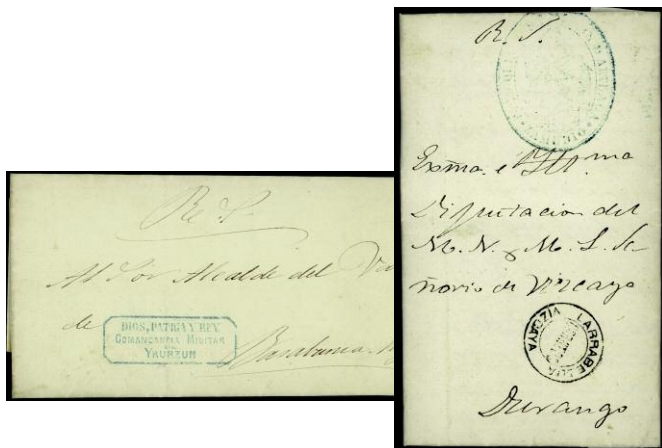 R. S.
Al Sor Alcalde del
de
DIOS, PATRIA Y REY.
COMANDANCIA MILITAR
DE
YRURZUN
R. S.
Exma. é Yllma
Diputacion del
M. N. y M. L. Se-
ñorio de Vizcaya
LARRABEZUA
VIZCAYA
Durango